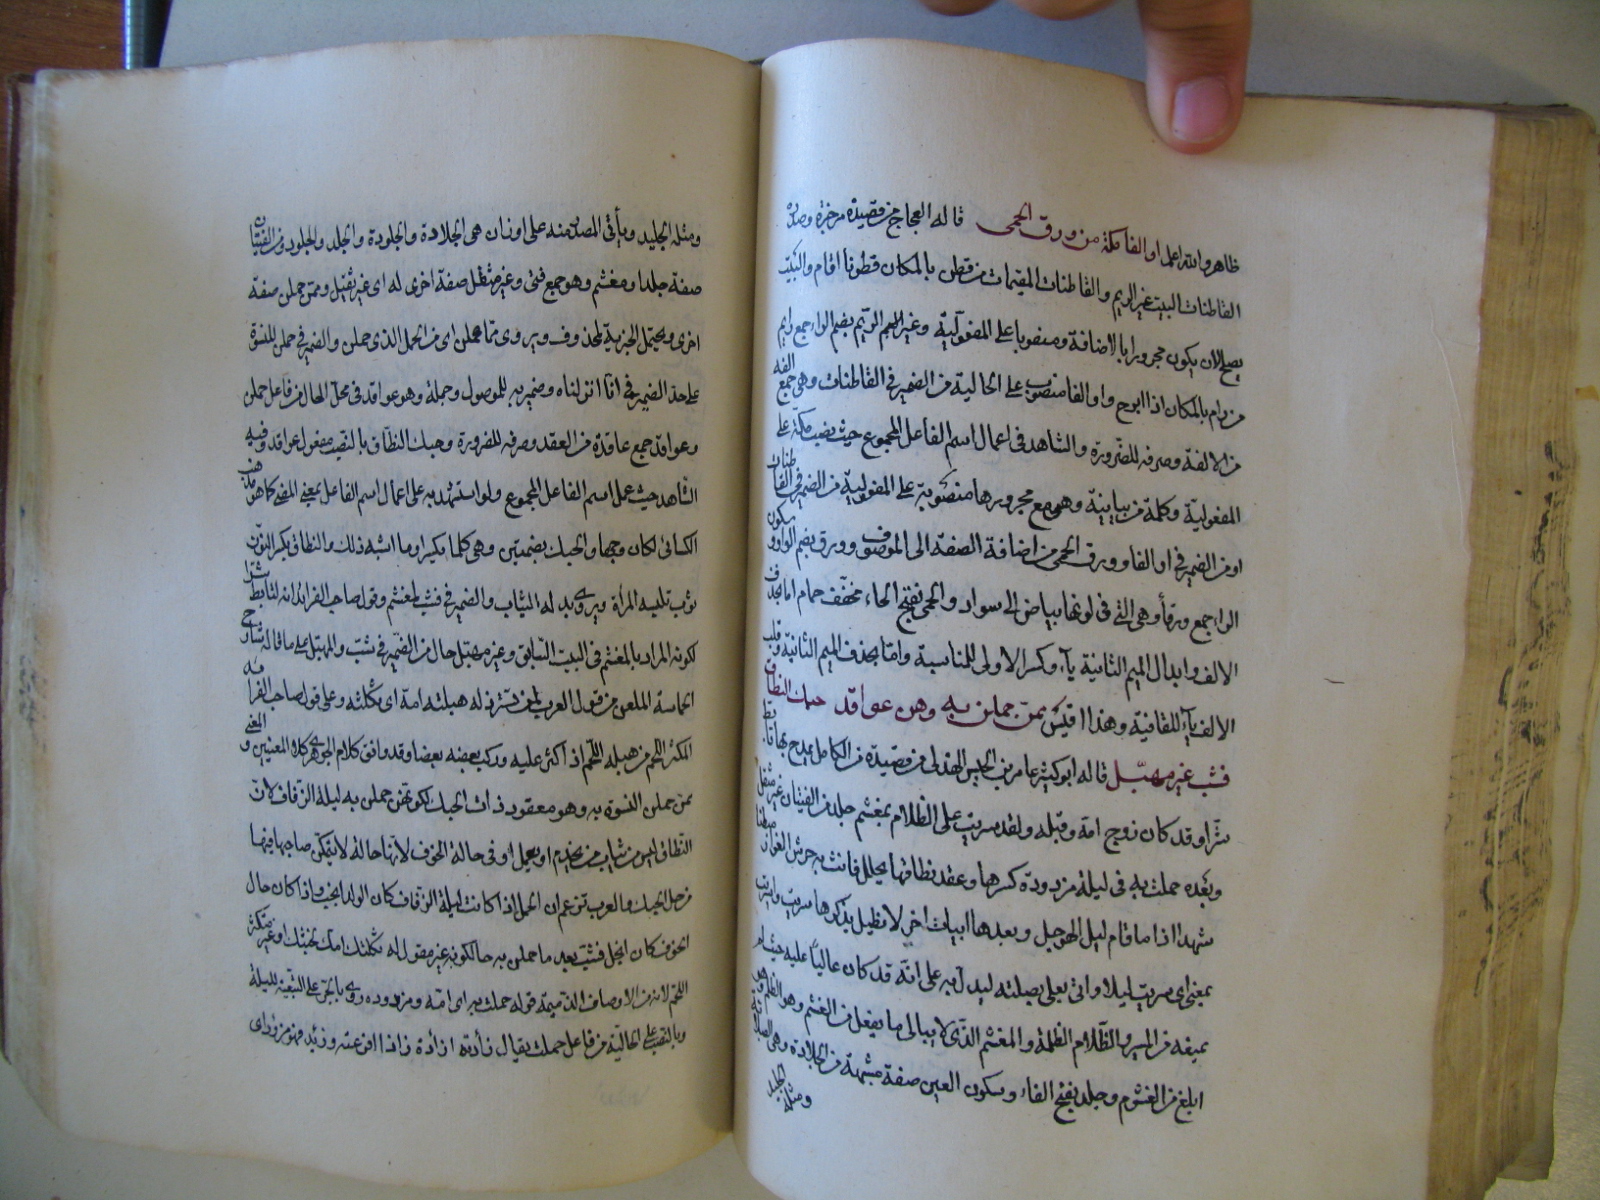 ظاهر والله اعلم اوالفا مكة من ورق الحمى قاله العجاج من قصيدة مرجزة وصدره
القاطنات البيت غير الريم والقاطنات المقيمات من قطن بالمكان قطونا اقام والبيت
يصلح لان يكون مجرورا بالاضافة ومنصوبا على المفعولية وغير الريم بضم الراء جمع رايم
من رام بالمكان اذا ابوح واوالفا منصوب على الحالية من الضمير في القاطنات وهي جمع الفه
من الالفة وصرفه للضرورة والشاهد في اعمال اسم الفاعل المجموع حيث نصب مكة على
المفعولية وكلمة من بيانية وهو مع مجرورها منصوبة على المفعولية من الضمير في القاطنات
او من الضمير في اوالفا وورق الحمى من اضافة الصفة الى الموصوف وورق بضم الواو وسكون
الراء جمع ورقاء وهي التي في لونها بياض الى سواد والحمى بفتح الحاء مخفف حمام اما بحذف
الالف وابدال الميم الثانية ياء وكسر الاولى للمناسبة واما بحذف الميم الثانية وقلب
الالف ياء للقافية وهذا اقيس ممن حملن به وهن عواقد حبك النطاق
فشب غير مهبل قاله ابو كبير عامر بن الحليس الهذلي من قصيدة من الكامل يمدح بها تابط
شرا وقد كان زوج امه وقبله ولقد سريت على الظلام بمغشم جلد من الفتيان غير مثقل
وبعده حملت به في ليلة مزدودة كرها وعقد نطاقها لم يحلل فاتت به حوش الفؤاد مبطنا
سهدا اذا ما قام ليل الهوجل وبعدها ابيات اخر لا نطيل بذكرها سريت واسريت
بمعنى اي سريت ليلا واتى بعلى بصلته ليدل به على انه قد كان غالبا عليه حيث لم
يعيقه من السير والظلام الظلمة والمغشم الذي لا يبالي ما يفعل من الغشم وهو الظلم وهو
ابلغ من الغشوم وجلد بفتح الفاء وسكون العين صفة مشبهة من الجلادة وهي الصلابة
ومثله الجليد
ومثله الجليد ويأتي المصدر منه على اوزان هي الجلادة والجلودة والجلد والجلود ومن الفتيان
صفة جلد او مغشم وهو جمع فتى وغير مثقل صفة اخرى له اي غير ثقيل وممن حملن صفة
اخرى ويحتمل الخبرية لمحذوف ويروى مما حملن اي من الحمل الذي حملن والضمير في حملن للنسوة
على حد الضمير في انا انزلناه وضمير به للموصول وجملة وهن عواقد في محل الحال من فاعل حملن
وعواقد جمع عاقدة من العقد وصرفه للضرورة وحبك النطاق بالنصب مفعول عواقد وفيه
الشاهد حيث عمل اسم الفاعل المجموع ولو استشهد به على اعمال اسم الفاعل بمعنى المضي كما هو مذهب
الكسائي لكان وجها والحبك بضمتين وهي كلما يكسر او ما اشبه ذلك والنطاق بكسر النون
ثوب تلبسه المرأة ويروى بدله الثياب والضمير في فشب لمغشم وقول صاحب الفرائد انه لتابط شرا
لكونه المراد بالمغشم في البيت السابق وغير مهبل حال من الضمير في شب والمهبل على ما قاله شارح
الحماسة الملعن من قول العرب لمن تشتمه هبلته امه اي ثكلته وعلى قول صاحب الفرائد
المكثر اللحم من هبله اللحم اذا كثر عليه وركب بعضه بعضا وقد وافق كلام الجوهري كلا المعنيين والمعنى
ممن حملن النسوة به وهو معقود ذات الحبك لكونهن حملن به ليلة الزفاف لان
النطاق ليس من ثياب من يخدم او يعمل او في حالة الخوف لانها حالة لا يتمكن صاحبها فيها
من حل الحبك والعرب تزعم ان الحمل اذا كانت ليلة الزفاف كان الولد انجب واذا كان حال
الخوف كان انجل فشب بعد ما حملن به حال كونه غير مقول له ثكلتك امك لخبثك او غير متكثر
اللحم لانه من الاوصاف الذميمة قوله حملت به اي امه ومزدودة روى بالجر على التبعية لليلة
وبالنصب على الحالية من فاعل حملت يقال زأدته ازأده زأدا افزعته وزئد فهو مزؤد اي